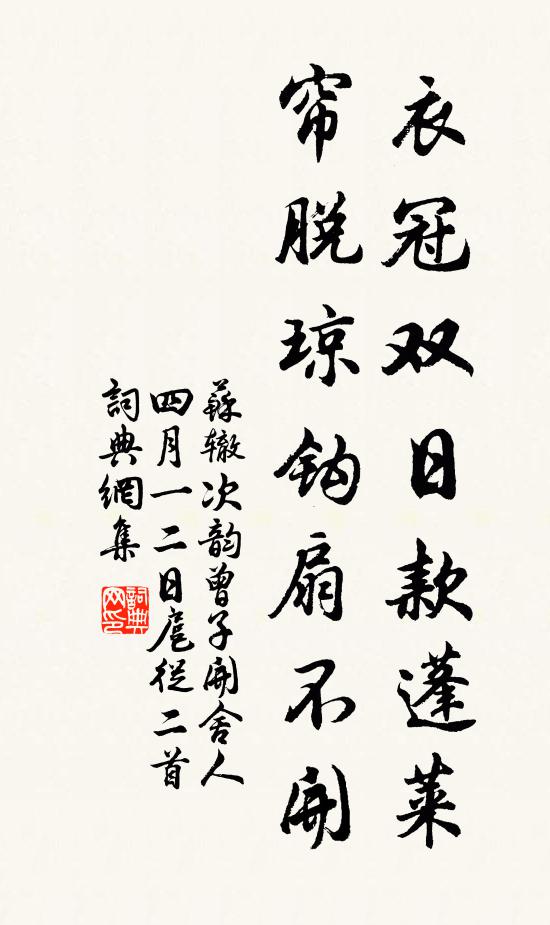 衣冠双日款蓬莱
帘脱琼钩扇不開
蘇辙次韵曾子開舍人
四月一二日扈從二首
詞典網集
詞典网印